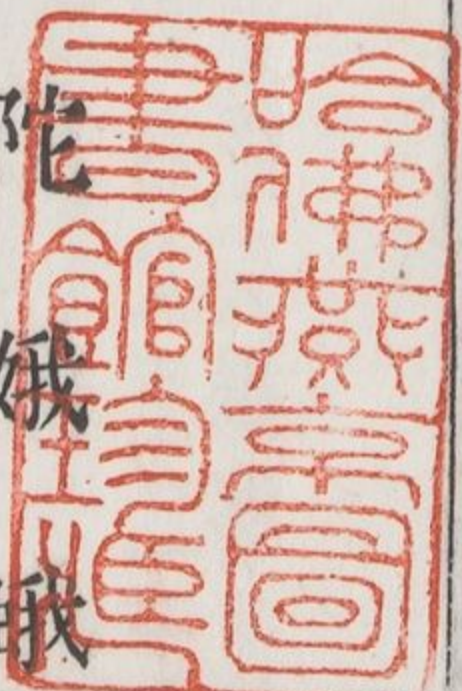 哈佛燕京圖
書館珍藏
陀娥